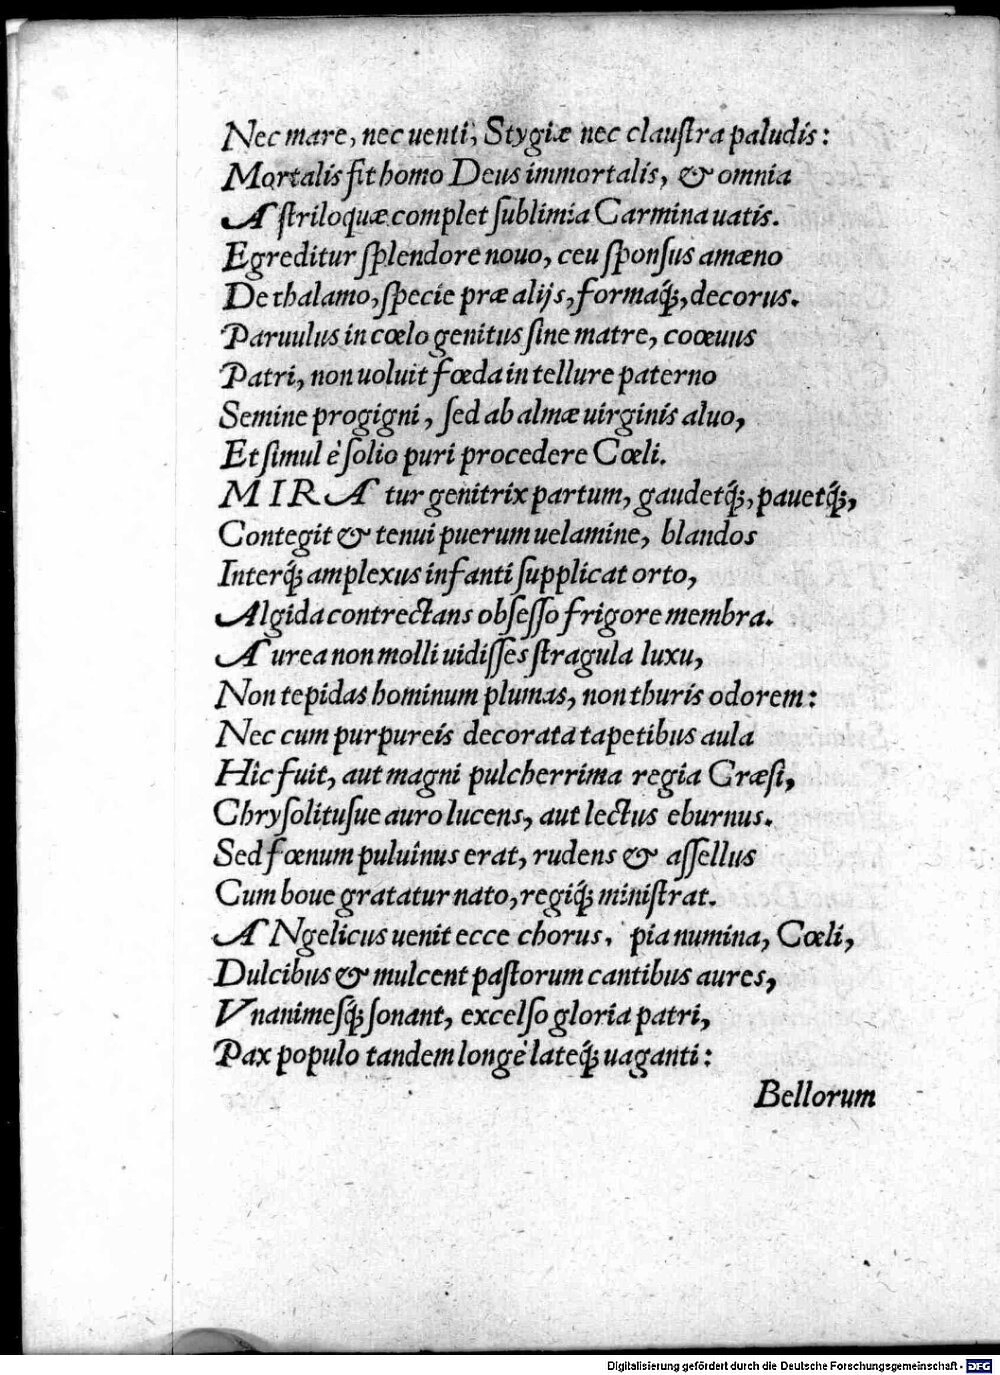 Nec mare, nec uenti, Stygiæ nec clauſtra paludis:
Mortalis fit homo Deus immortalis, & omnia
Aſtriloquæ complet ſublimia Carmina uatis.
Egreditur ſplendore nouo, ceu ſponſus amœno
De thalamo, ſpecie præ alijs, formaq́;, decorus.
Paruulus in cœlo genitus ſine matre, coœuus
Patri, non uoluit fœda in tellure paterno
Semine progigni, ſed ab almæ uirginis aluo,
Et ſimul è ſolio puri procedere Cœli.
MIRAtur genitrix partum, gaudetq́;, pauetq́;,
Contegit & tenui puerum uelamine, blandos
Interq́; amplexus infanti ſupplicat orto,
Algida contrectans obſeſſo frigore membra.
Aurea non molli uidiſſes ſtragula luxu,
Non tepidas hominum plumas, non thuris odorem:
Nec cum purpureis decorata tapetibus aula
Hîc fuit, aut magni pulcherrima regia Græſi,
Chryſolituſue auro lucens, aut lectus eburnus.
Sed fœnum puluinus erat, rudens & aſſellus
Cum boue gratatur nato, regiq́; miniſtrat.
ANgelicus uenit ecce chorus, pia numina, Cœli,
Dulcibus & mulcent paſtorum cantibus aures,
Vnanimeſq́; ſonant, excelſo gloria patri,
Pax populo tandem longè lateq́; uaganti:
Bellorum
Digitalisierung gefördert durch die Deutsche Forschungsgemeinschaft - DFG